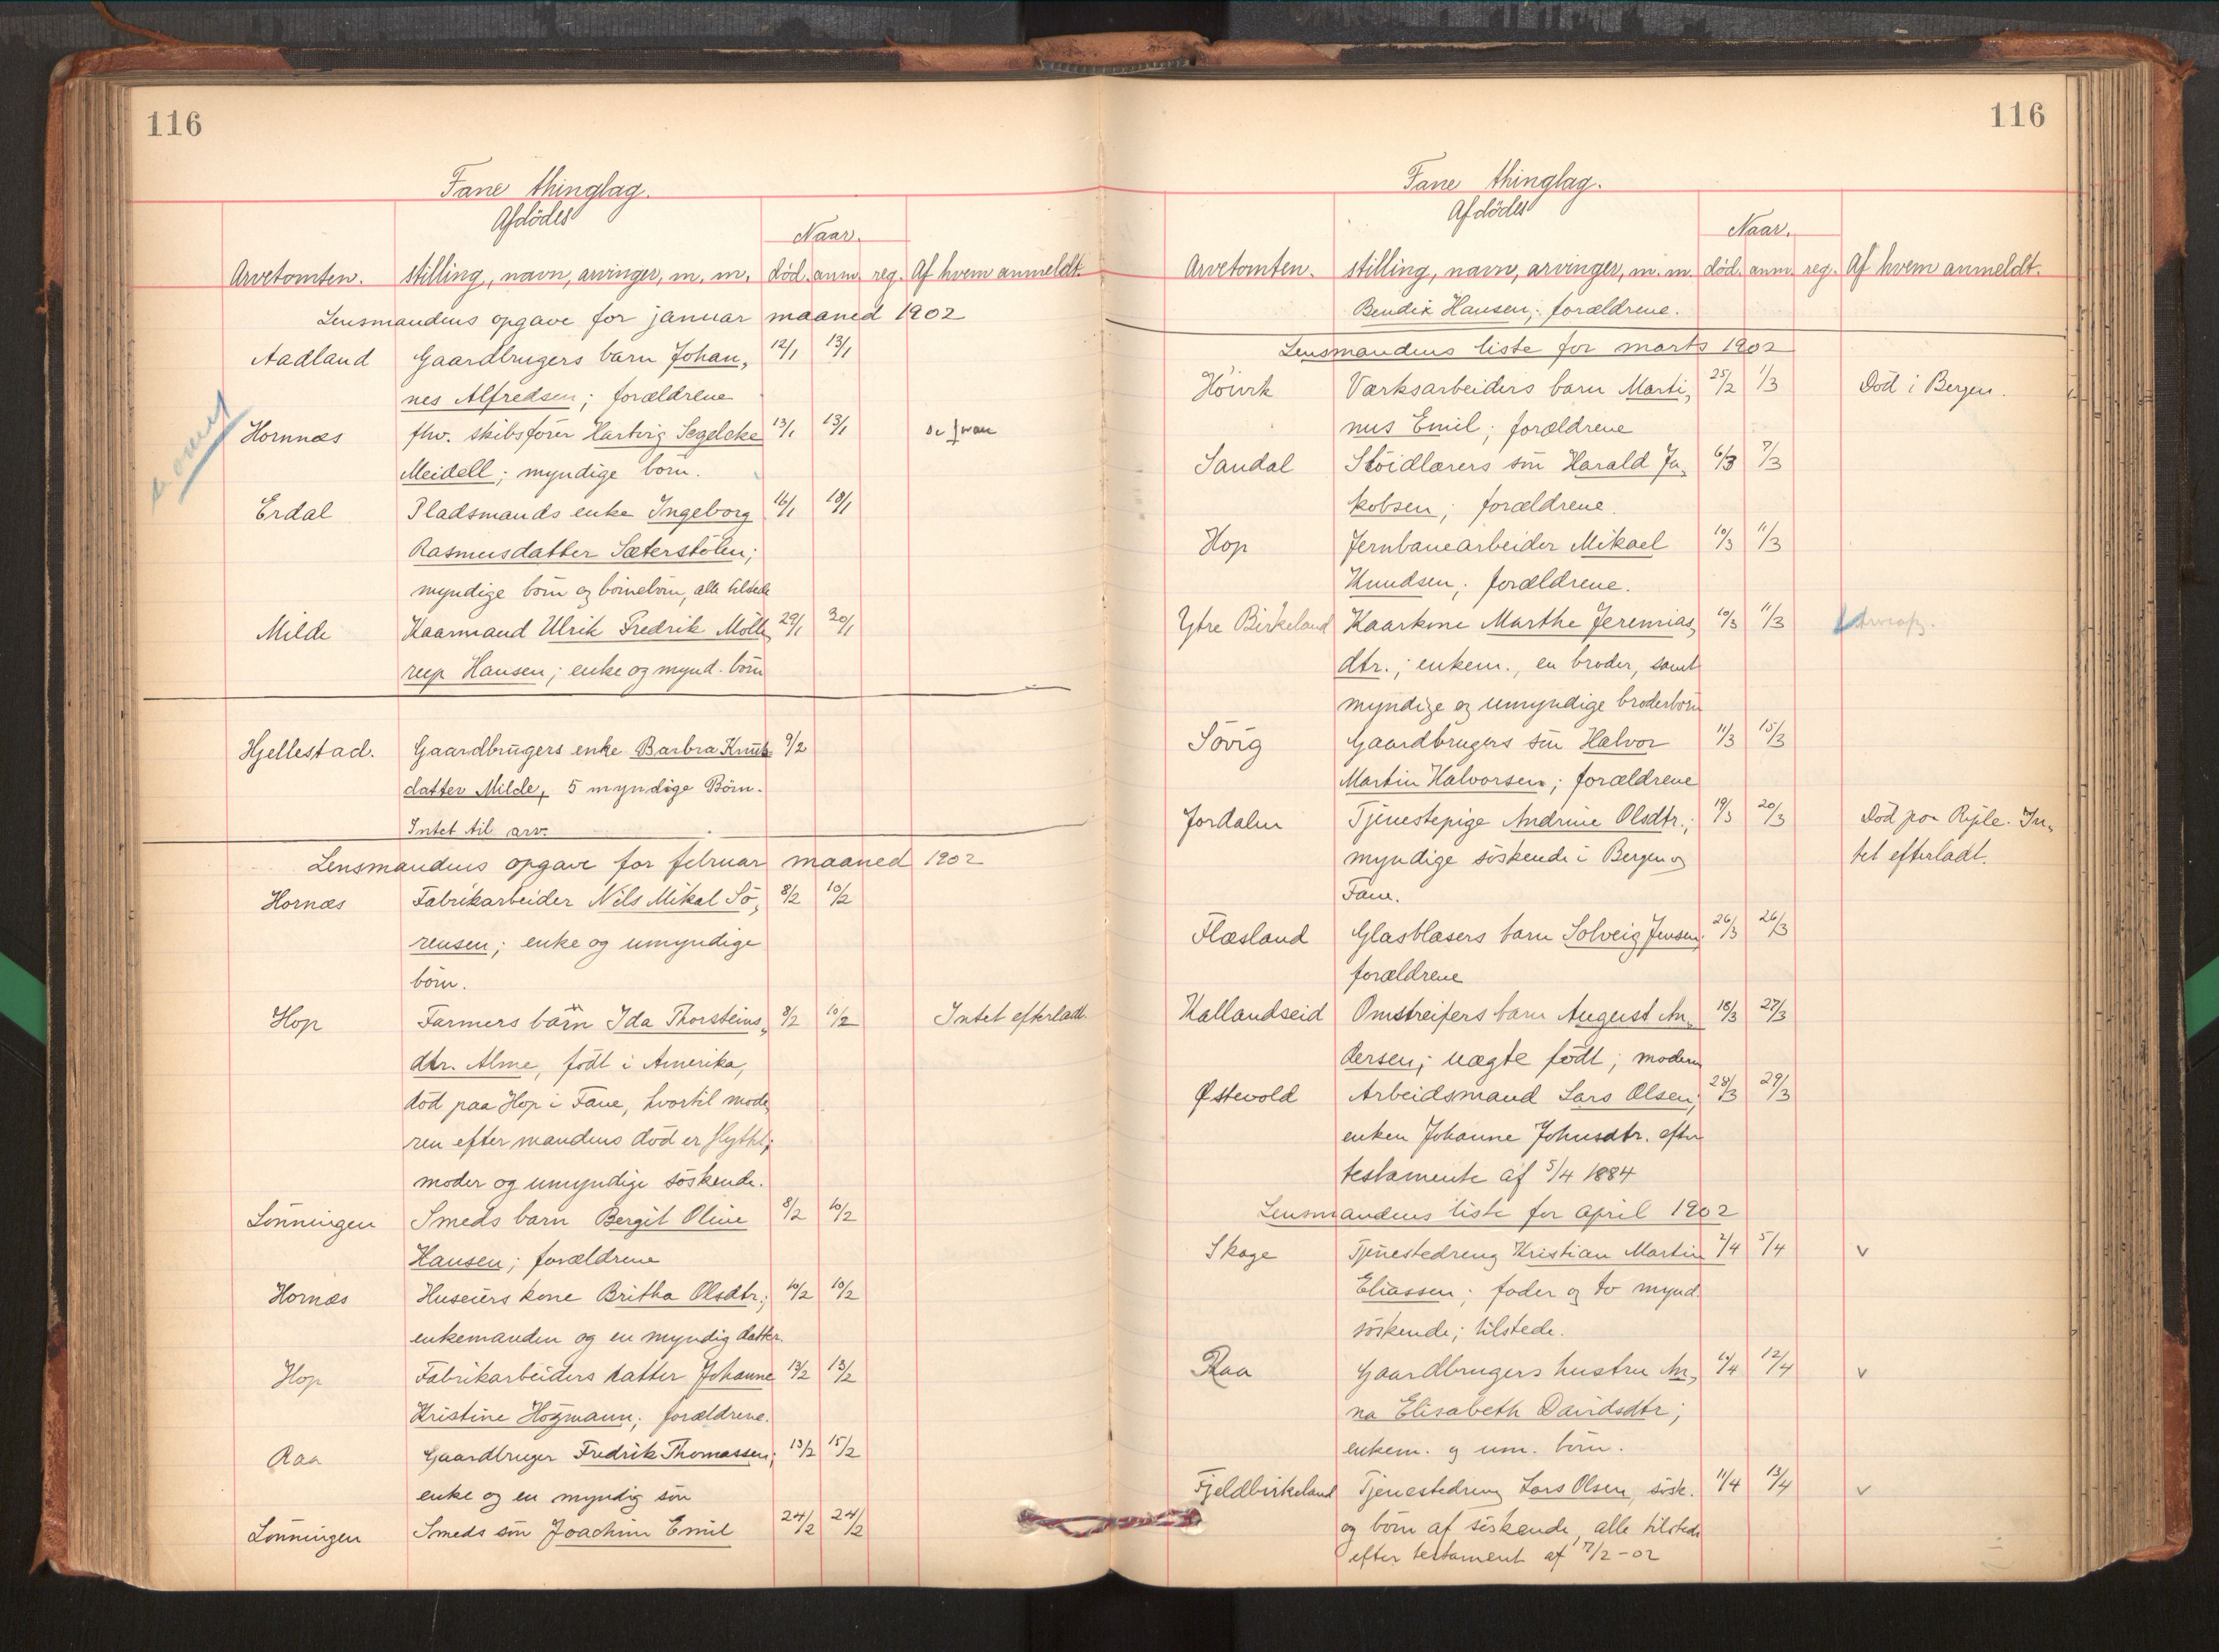 116
Fane thinglag.
Afdödes
Naar.
Arvetomten. stilling, navn, arvinger, m. m. död. anm. reg. Af hvem anmeldt.
Lensmandens opgave for januar maaned 1902
Aadland Gaardbrugers barn Johan, 12/1 13/1
nes Alfredsen; forældrene
Hornnæs fhv. skibsfører Hartvig Segelcke 13/1 13/1
Meidell; myndige börn.
Erdal Pladsmands enke Ingeborg 16/1 18/1
Rasmusdatter Sæterstölen;
myndige börn og börnebörn, alle tilstede
Milde Kaarmand Ulrik Fredrik Mölle, 29/1 30/1
reep Hansen; enke og mynd. börn
Hjellestad. Gaardbrugers enke Barbra Knuts 9/2
datter Milde, 5 myndige Börn.
Intet til arv.
Lensmandens opgave for februar maaned 1902
Hornæs Fabrikarbeider Nils Mikal Sö, 8/2 10/2
rensen; enke og umyndige
börn.
Hop Farmers barn Ida Thorsteins, 8/2 10/2 Intet efterladt.
dtr. Alme, födt i Amerika,
död paa Hop i Fane, hvortil mode,
ren efter mandens död er flyttet;
moder og umyndige söskende.
Lönningen Smeds barn Bergit Oline 8/2 10/2
Hansen; forældrene
Hornæs Huseiers kone Britha Olsdtr.; 10/2 10/2
enkemanden og en myndig datter.
Hop Fabrikarbeiders datter Johanne 13/2 13/2
Kristine Hogmann; forældrene.
Raa Gaardbruger Fredrik Thomassen; 13/2 15/2
enke og en myndig sön
Lönningen Smeds sön Joachim Emil 24/2 24/2
116
Fane thinglag.
Afdödes
Naar.
Arvetomten. stilling, navn, arvinger, m. m. död. anm. reg. Af hvem anmeldt.
Bendix Hansen; forældrene.
Lensmandens liste for marts 1902
Höivik Værksarbeiders barn Marti, 25/2 1/3 Död i Bergen.
nus Emil; forældrene
Sandal Slöidlærers sön Harald Ja, 6/3 7/3
kobsen; forældrene.
Hop Jernbanearbeider Mikael 10/3 11/3
Knudsen; forældrene.
Ytre Birkeland Kaarkone Marthe Jeremias, 10/3 11/3
dtr.; enkem., en broder, samt
myndige og umyndige broderbörn
Sövig Gaardbrugers sön Halvor 11/3 15/3
Martin Halvorsen; forældrene
Jordalen Tjenestepige Andrine Olsdtr.; 19/3 20/3 Död paa Rijle. In,
myndige söskende i Bergen og tet efterladt.
Fane.
Flæsland Glasblæsers barn Solveig Jensen; 26/3 26/3
forældrene
Kallandseid Omstreifers barn August An, 18/3 27/3
dersen; uægte födt; moderen
Østevold Arbeidsmand Lars Olsen; 28/3 29/3
enken Johanne Johnsdtr. efter
testamente af 5/4 1884
Lensmandens liste for april 1902
Skage Tjenestedreng Kristian Martin 2/4 5/4 v
Eliassen; fader og to mynd.
söskende; tilstede.
Raa Gaardbrugers hustru An, 10/4 12/4 v
na Elisabeth Davidsdtr;
enkem. og um. börn.
Fjeldbirkeland Tjenestedreng Lars Olsen, sösk. 11/4 13/4 v
og börn af söskende, alle tilstede
efter testament af 17/2-02